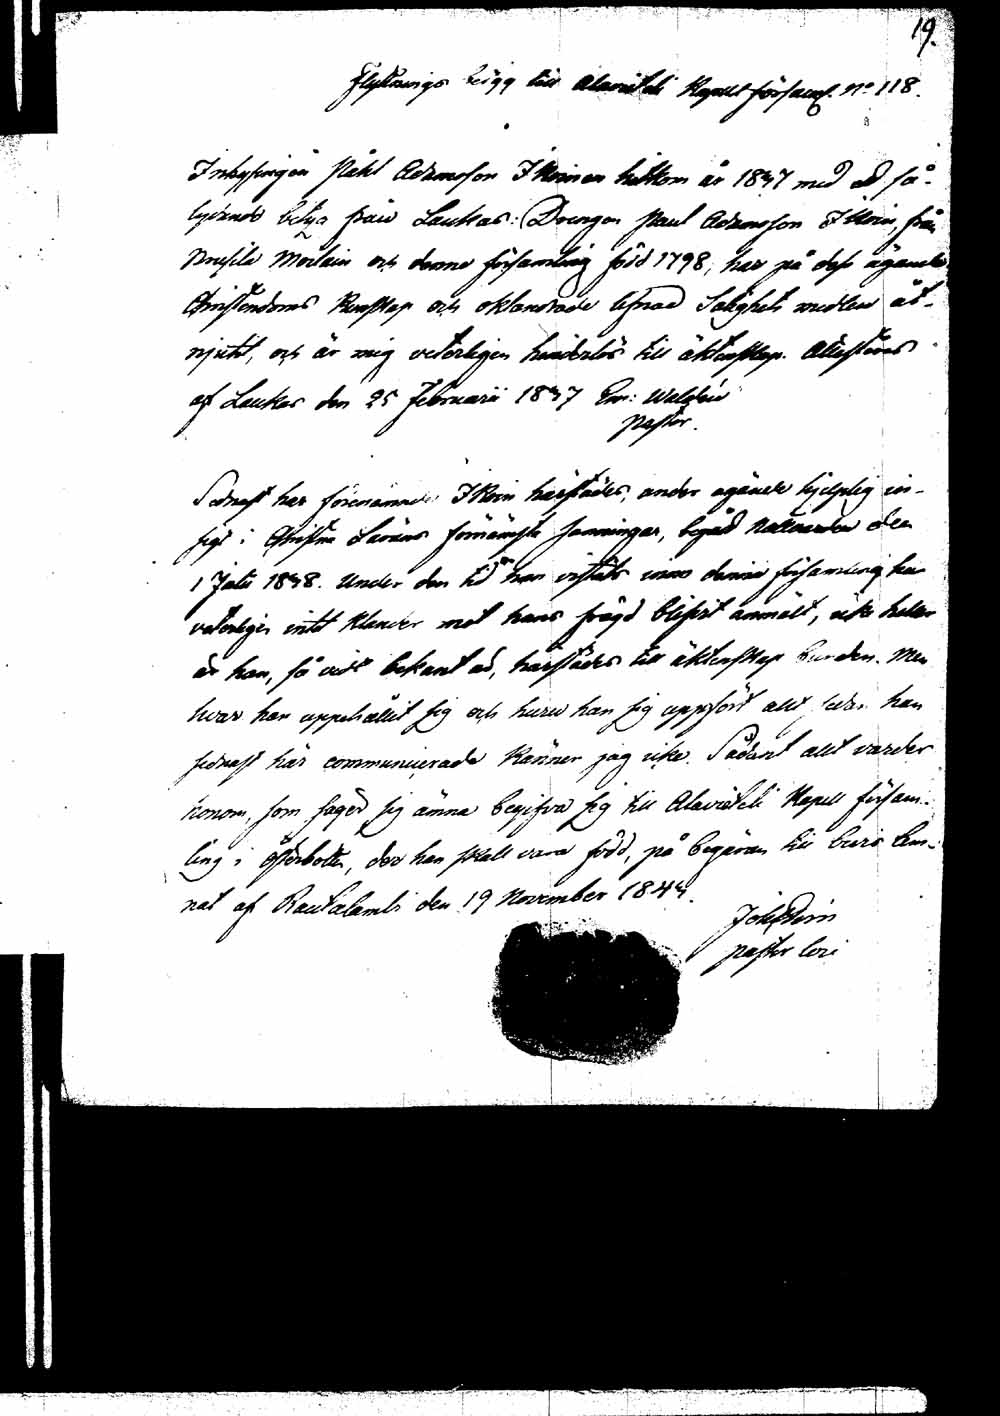 19.
Flyttnings betyg till Alaveteli Kapell församl. No 118.
Inhysingen Påhl Adamsson Ikoinen hitkom år 1837 med ett så-
lydande betyg från Laukas: Drengen Paul Adamsson Ikoin, från
och denna församling född 1798, har på dess ägande
Christendoms Kunskap och oklandrade lefnad Salighets medlen åt-
njutit, och är mig veterligen hinderlös till äktenskap. Attesteras
af Laukas den 25 Februarii 1837 Em: Walden
Pastor.
Sednast har förenämnde Ikoin härstädes, under ägande hjelplig in-
sigt i Christna Lärans förnämsta sanningar, begått Nattvarden den
1 Julii 1838. Under den tid han vistats inom denna församling har
veterligen intet klander mot hans frägd blifvit anmält, icke heller
är han, så vidt bekant är, härstädes till äktenskap bunden. Men
hvar han uppehållit sig och huru han sig uppfört allt sedan han
sednast här communicerade känner jag icke. Sådant allt varder
honom, som säger sig ämna begifva sig till Alaveteli Kapell försam-
ling i Österbotten, der han skall vara född, på begäran till bevis lem-
nat af Rautalambi den 19 November 1844.
Pastor loci